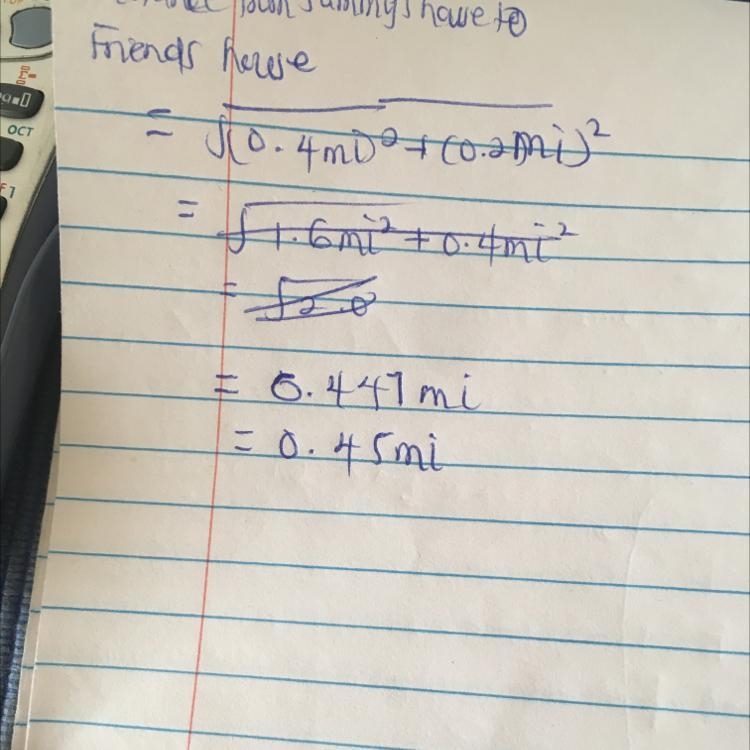 from Sammy's house to
Friends house
= √(0.4mi)² + (0.2mi)²
= √1.6mi² + 0.4mi²
= √2.0
= 0.447mi
= 0.45mi
OCT